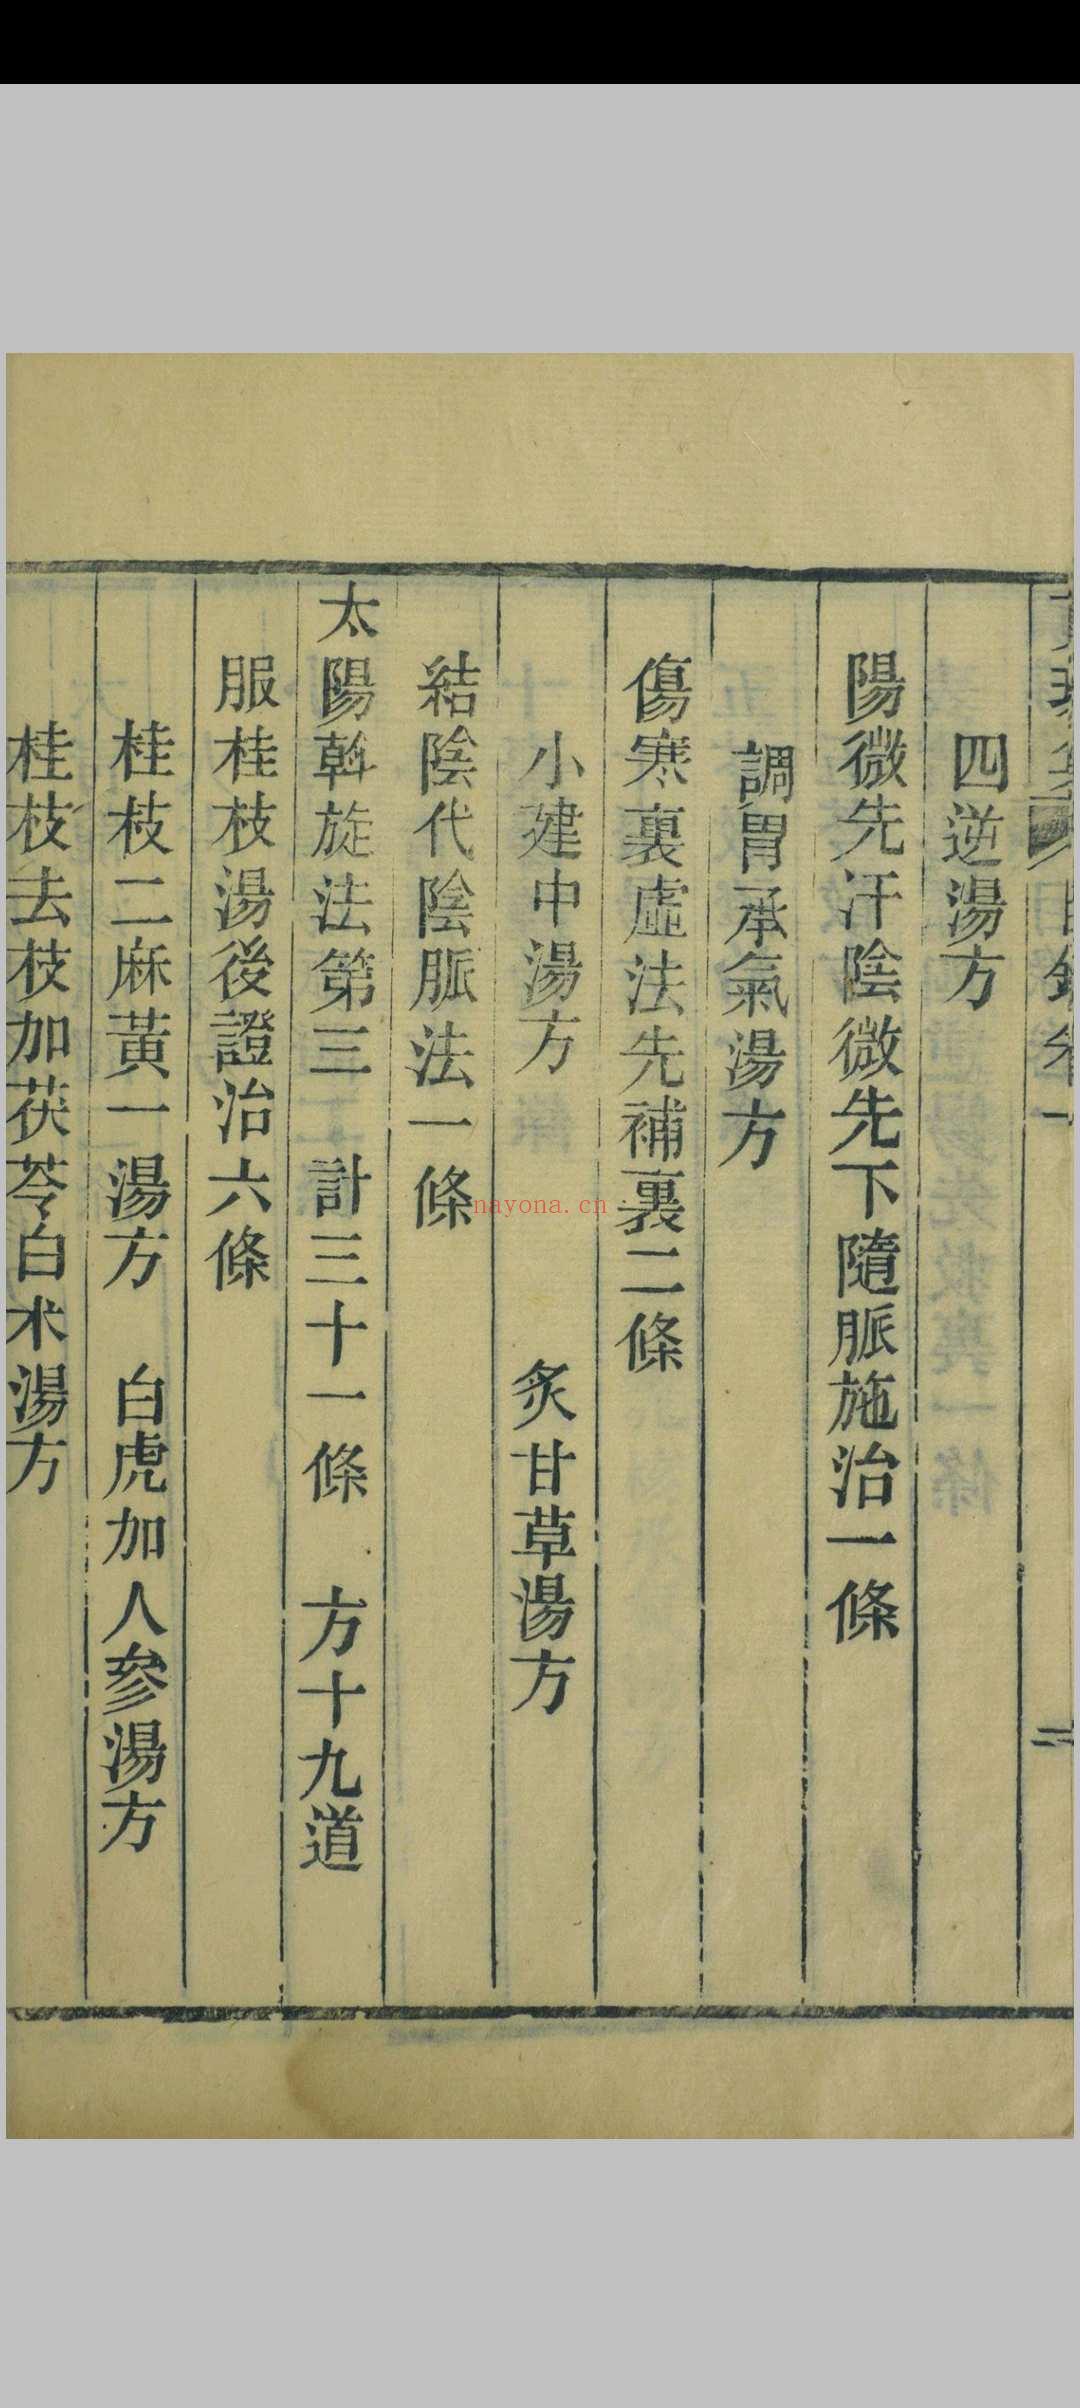 四逆湯方
陽微先汗陰微先下隨脈施治一條
調胃承氣湯方
傷寒裏虛法先補裏二條
小建中湯方 炙甘草湯方
結陰代陰脈法一條
太陽斡旋法第三 計三十一條 方十九道
服桂枝湯後證治六條
桂枝二麻黃一湯方 白虎加人參湯方
桂枝去枝加茯苓白术湯方
nayona.cn